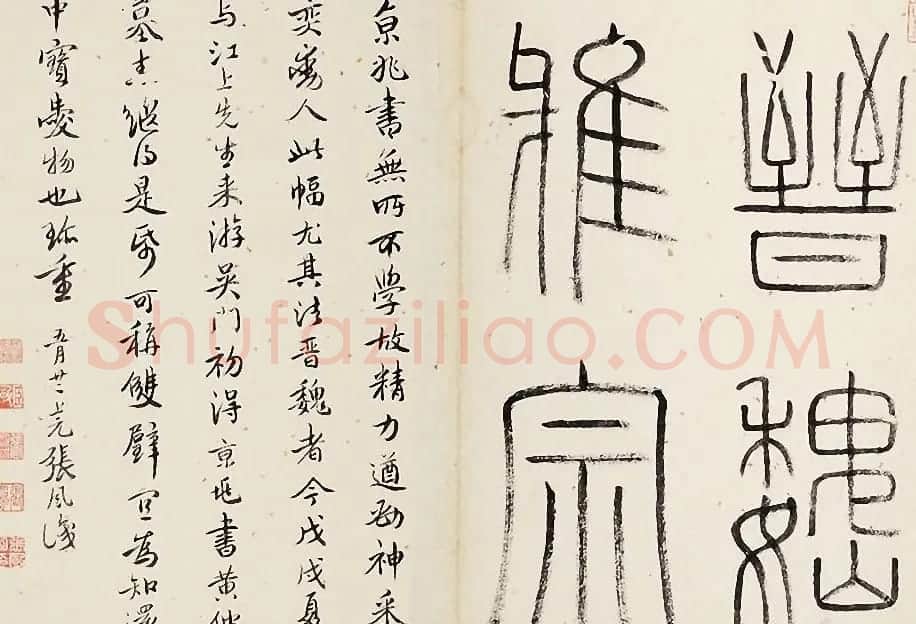 晉魏
雅宗
京兆書無所不學故精力遒勁神采
奕奕動人此幅尤其法晉魏者今戊戌夏
与江上先生来游吴門初得京兆書黄仙
墓志繼得是𢎥可稱雙璧宜為知
中寶愛物也珍重 五月廿二 張風識
Shufaziliao.COM